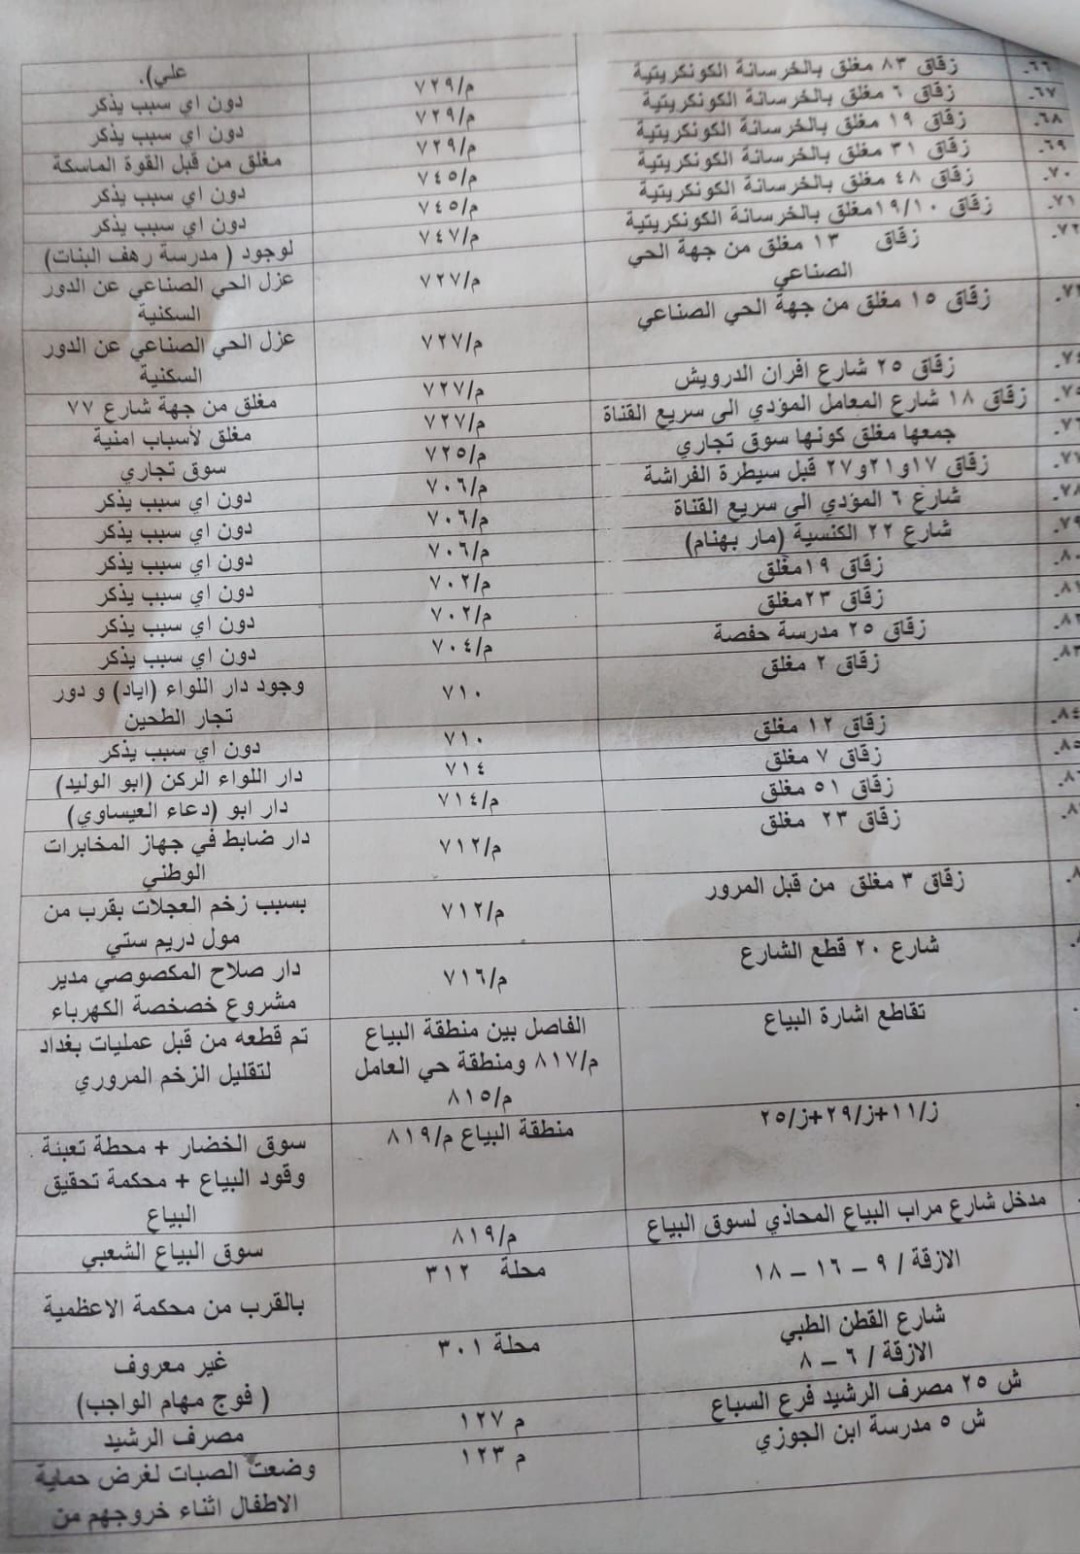 علي).
٦٦. زقاق ٨٣ مغلق بالخرسانة الكونكريتية م/٧٢٩ دون اي سبب يذكر
٦٧. زقاق ٦ مغلق بالخرسانة الكونكريتية م/٧٢٩ دون اي سبب يذكر
٦٨. زقاق ١٩ مغلق بالخرسانة الكونكريتية م/٧٢٩ مغلق من قبل القوة الماسكة
٦٩. زقاق ٣١ مغلق بالخرسانة الكونكريتية م/٧٤٥ دون اي سبب يذكر
٧٠. زقاق ٤٨ مغلق بالخرسانة الكونكريتية م/٧٤٥ دون اي سبب يذكر
٧١. زقاق ١٩/١٠مغلق بالخرسانة الكونكريتية م/٧٤٧ لوجود ( مدرسة رهف البنات)
٧٢. زقاق ١٣ مغلق من جهة الحي م/٧٢٧ عزل الحي الصناعي عن الدور
الصناعي السكنية
زقاق ١٥ مغلق من جهة الحي الصناعي م/٧٢٧ عزل الحي الصناعي عن الدور
السكنية
٧٤. زقاق ٢٥ شارع افران الدرويش م/٧٢٧ مغلق من جهة شارع ٧٧
٧٥. زقاق ١٨ شارع المعامل المؤدي الى سريع القناة م/٧٢٧ مغلق لأسباب امنية
٧٦. جمعها مغلق كونها سوق تجاري م/٧٢٥ سوق تجاري
٧٧. زقاق ١٧و٢١و٢٧ قبل سيطرة الفراشة م/٧٠٦ دون اي سبب يذكر
٧٨. شارع ٦ المؤدي الى سريع القناة م/٧٠٦ دون اي سبب يذكر
٧٩. شارع ٢٢ الكنسية (مار بهنام) م/٧٠٦ دون اي سبب يذكر
٨٠. زقاق ١٩مغلق م/٧٠٢ دون اي سبب يذكر
٨١. زقاق ٢٣مغلق م/٧٠٢ دون اي سبب يذكر
٨٢. زقاق ٢٥ مدرسة حفصة م/٧٠٤ دون اي سبب يذكر
٨٣. زقاق ٢ مغلق ٧١٠ وجود دار اللواء (اياد) و دور
تجار الطحين
٨٤. زقاق ١٢ مغلق ٧١٠ دون اي سبب يذكر
٨٥. زقاق ٧ مغلق ٧١٤ دار اللواء الركن (ابو الوليد)
٨٦. زقاق ٥١ مغلق م/٧١٤ دار ابو (دعاء العيساوي)
زقاق ٢٣ مغلق م/٧١٢ دار ضابط في جهاز المخابرات
الوطني
زقاق ٣ مغلق من قبل المرور م/٧١٢ بسبب زخم العجلات بقرب من
مول دريم ستي
شارع ٢٠ قطع الشارع م/٧١٦ دار صلاح المكصوصي مدير
مشروع خصخصة الكهرباء
تقاطع اشارة البياع الفاصل بين منطقة البياع تم قطعه من قبل عمليات بغداد
م/٨١٧ ومنطقة حي العامل لتقليل الزخم المروري
م/٨١٥
ز/١١+ز/٢٩+ز/٢٥ منطقة البياع م/٨١٩ سوق الخضار + محطة تعبئة
وقود البياع + محكمة تحقيق
البياع
مدخل شارع مراب البياع المحاذي لسوق البياع م/٨١٩ سوق البياع الشعبي
الازقة / ٩ – ١٦ – ١٨ محلة ٣١٢ بالقرب من محكمة الاعظمية
شارع القطن الطبي محلة ٣٠١ غير معروف
الازقة / ٦ – ٨ ( فوج مهام الواجب)
ش ٢٥ مصرف الرشيد فرع السباع م ١٢٧ مصرف الرشيد
ش ٥ مدرسة ابن الجوزي م ١٢٣ وضعت الصبات لغرض حماية
الاطفال اثناء خروجهم من